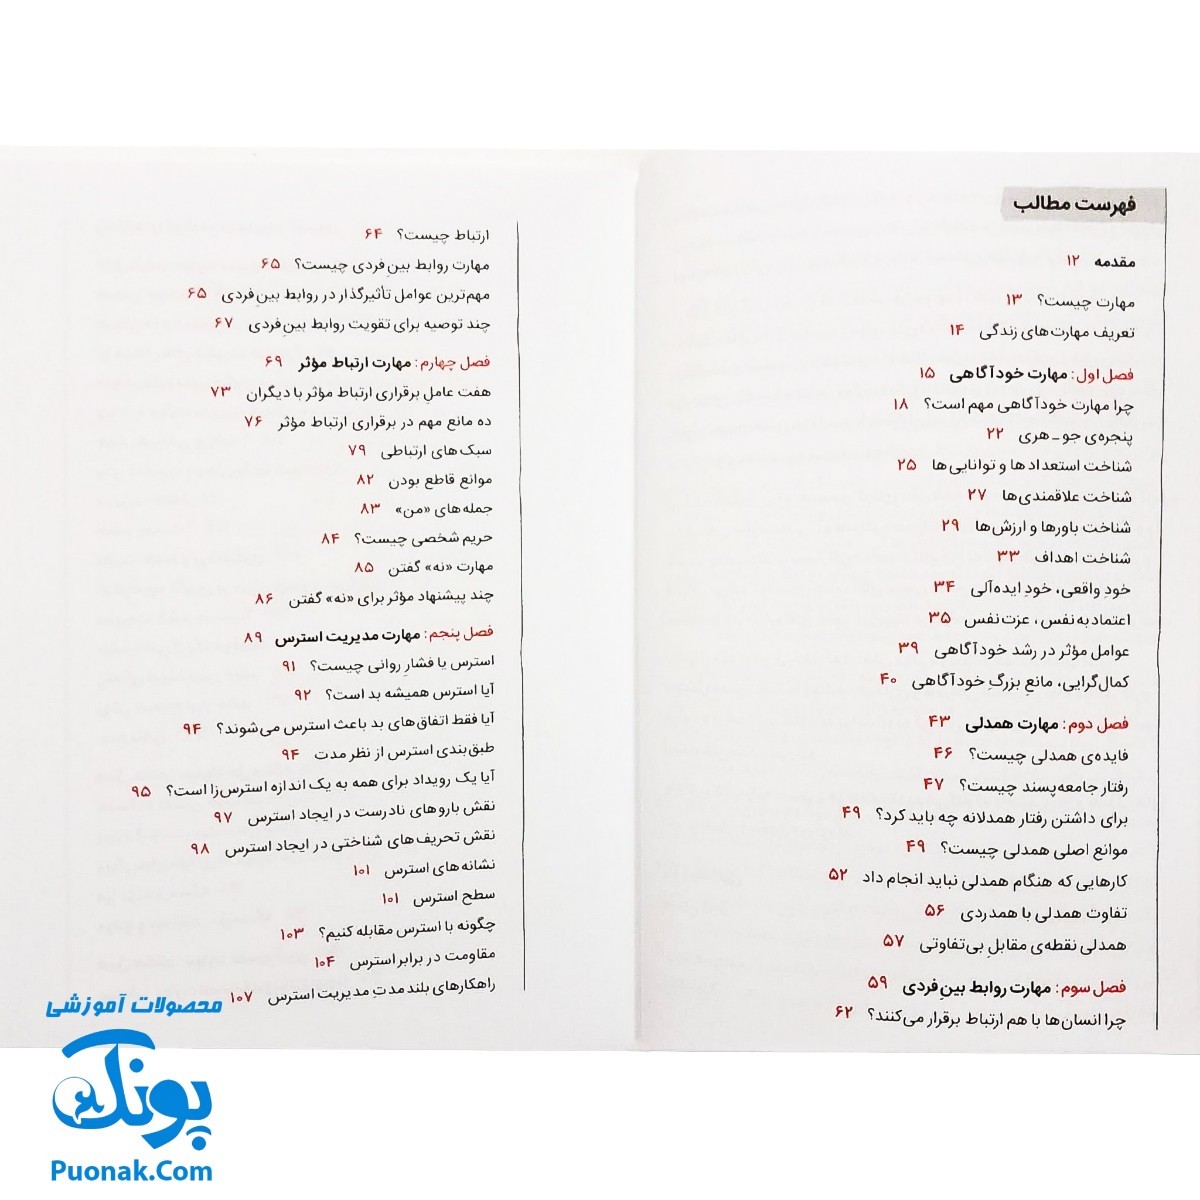 فهرست مطالب
مقدمه ۱۲
مهارت چیست؟ ۱۳
تعریف مهارت‌های زندگی ۱۴
فصل اول: مهارت خودآگاهی ۱۵
چرا مهارت خودآگاهی مهم است؟ ۱۸
پنجره‌ی جو ـ هری ۲۲
شناخت استعدادها و توانایی‌ها ۲۵
شناخت علاقمندی‌ها ۲۷
شناخت باورها و ارزش‌ها ۲۹
شناخت اهداف ۳۳
خودِ واقعی، خودِ ایده‌آلی ۳۴
اعتمادبه‌نفس، عزت‌نفس ۳۵
عوامل مؤثر در رشد خودآگاهی ۳۹
کمال‌گرایی، مانعِ بزرگِ خودآگاهی ۴۰
فصل دوم: مهارت همدلی ۴۳
فایده‌ی همدلی چیست؟ ۴۶
رفتار جامعه‌پسند چیست؟ ۴۷
برای داشتن رفتار همدلانه چه باید کرد؟ ۴۹
موانع اصلی همدلی چیست؟ ۴۹
کارهایی که هنگام همدلی نباید انجام داد ۵۲
تفاوت همدلی با همدردی ۵۶
همدلی نقطه‌ی مقابلِ بی‌تفاوتی ۵۷
فصل سوم: مهارت روابط بینِ‌فردی ۵۹
چرا انسان‌ها با هم ارتباط برقرار می‌کنند؟ ۶۲
ارتباط چیست؟ ۶۴
مهارت روابط بینِ‌فردی چیست؟ ۶۵
مهم‌ترین عوامل تأثیرگذار در روابط بینِ‌فردی ۶۵
چند توصیه برای تقویت روابط بینِ‌فردی ۶۷
فصل چهارم: مهارت ارتباط مؤثر ۶۹
هفت عاملِ برقراری ارتباط مؤثر با دیگران ۷۳
ده مانع مهم در برقراری ارتباط مؤثر ۷۶
سبک‌های ارتباطی ۷۹
موانع قاطع بودن ۸۲
جمله‌های «من» ۸۳
حریم شخصی چیست؟ ۸۴
مهارت «نه» گفتن ۸۵
چند پیشنهاد مؤثر برای «نه» گفتن ۸۶
فصل پنجم: مهارت مدیریت استرس ۸۹
استرس یا فشارِ روانی چیست؟ ۹۱
آیا استرس همیشه بد است؟ ۹۲
آیا فقط اتفاق‌های بد باعث استرس می‌شوند؟ ۹۴
طبق‌بندی استرس از نظر مدت ۹۴
آیا یک رویداد برای همه به یک اندازه استرس‌زا است؟ ۹۵
نقش باروهای نادرست در ایجاد استرس ۹۷
نقش تحریف‌های شناختی در ایجاد استرس ۹۸
نشانه‌های استرس ۱۰۱
سطح استرس ۱۰۱
چگونه با استرس مقابله کنیم؟ ۱۰۳
مقاومت در برابر استرس ۱۰۴
راهکارهای بلندمدتِ مدیریت استرس ۱۰۷
محصولات آموزشی
پونک
Puonak.Com